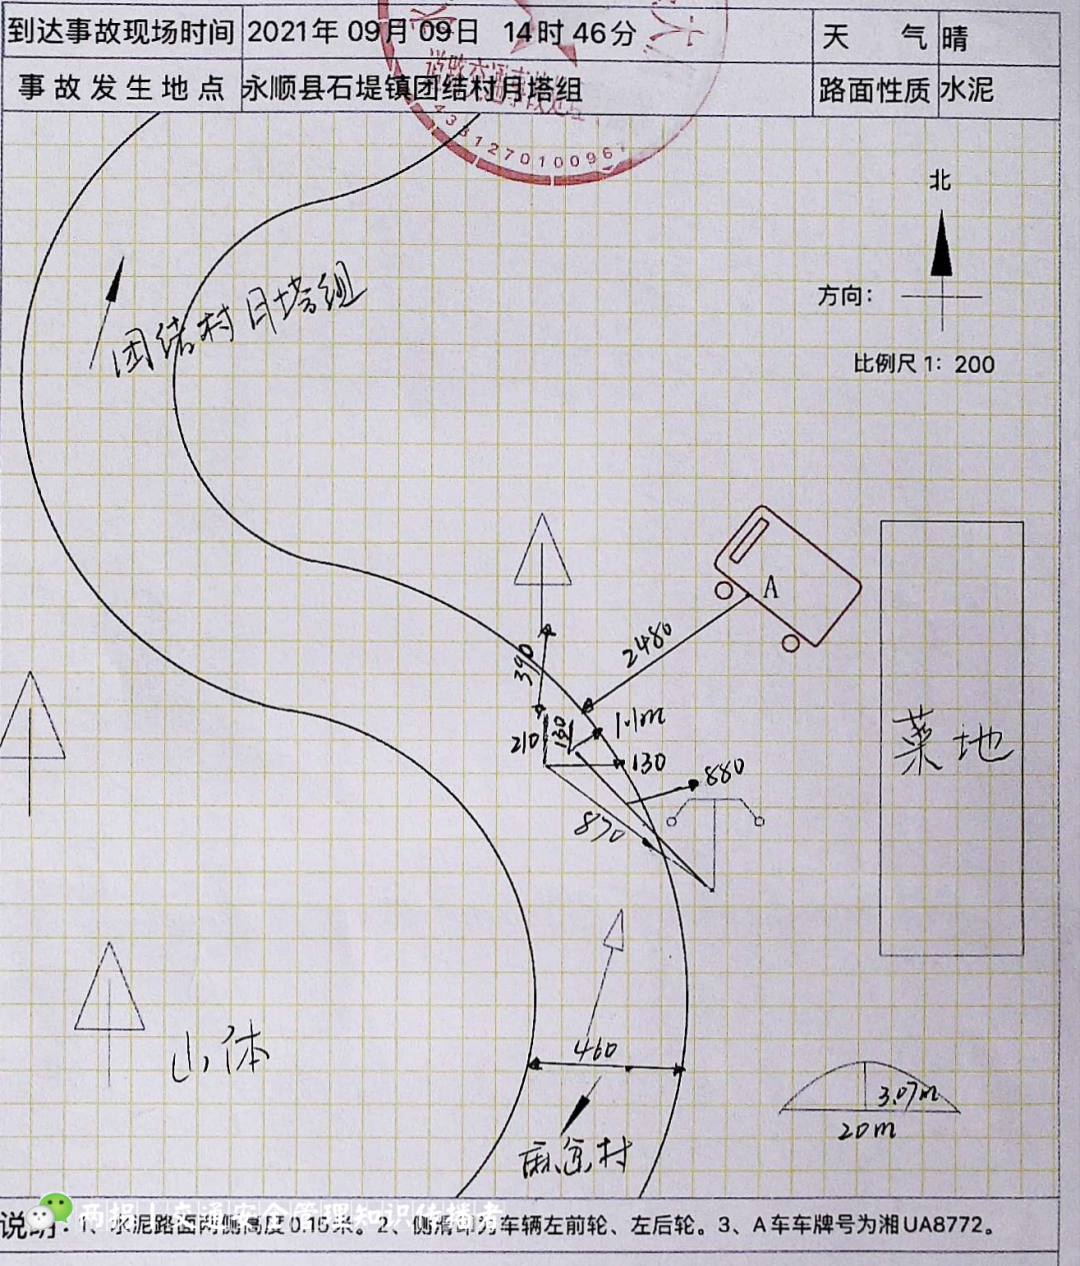 到达事故现场时间 2021年 09月 09日 14时 46分 天 气 晴
事故发生地点 永顺县石堤镇团结村月塔组 路面性质 水泥
4331270100967
北
方向:
比例尺 1: 200
团结村月塔组
A
2480
390
1.1m
210
130
880
870
菜地
山体
460
3.07m
20m
村
说明: 1、水泥路面两侧高度 0.15 米。2、侧滑印为车辆左前轮、左后轮。3、A 车车牌号为湘 UA8772。
两报一交通安全管理知识传播者